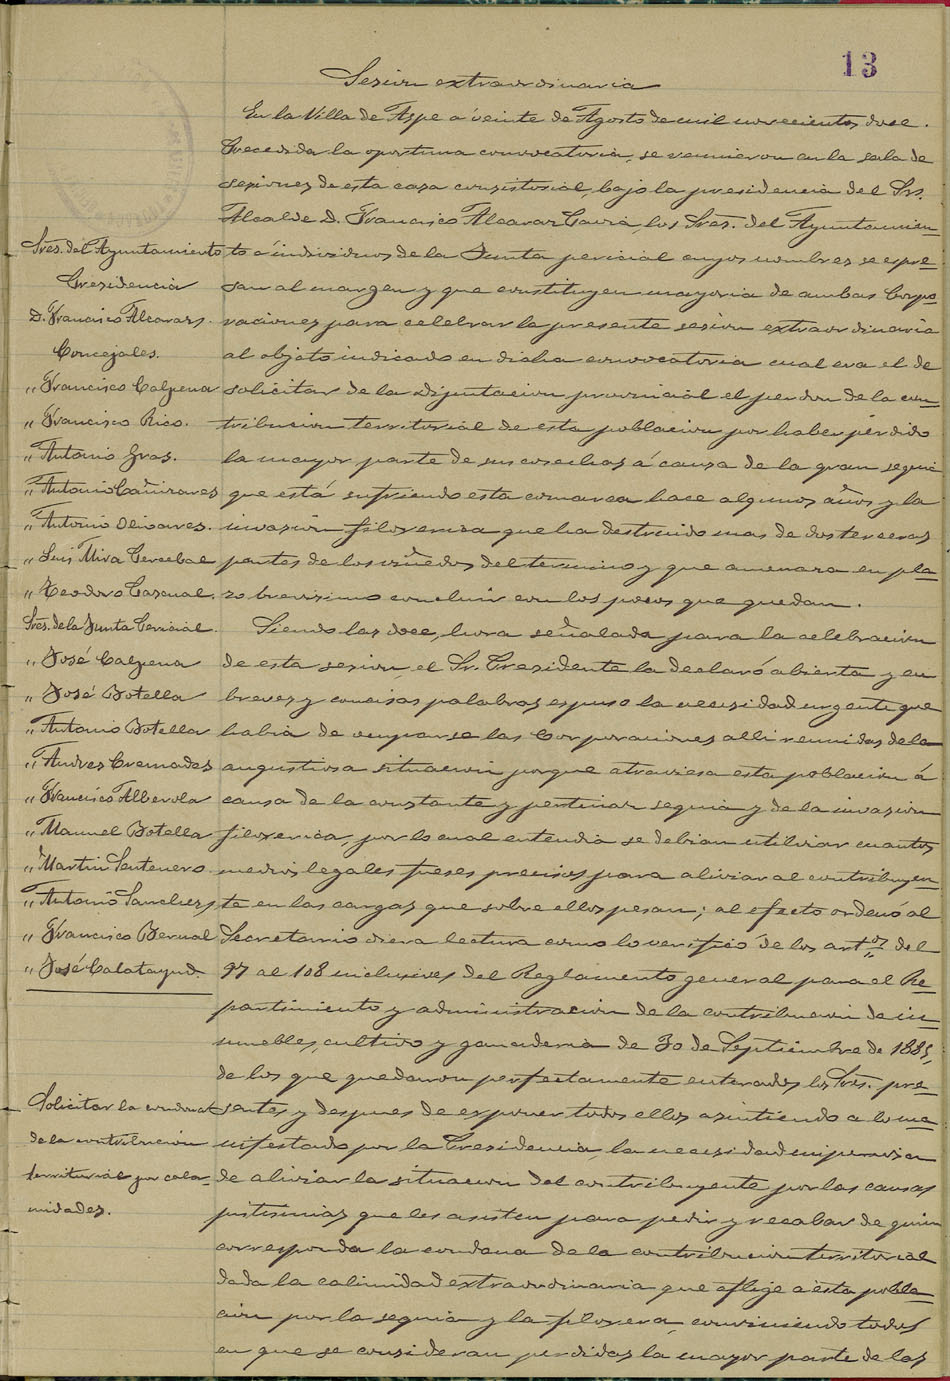 13
Sesion extraordinaria
En la Villa de Aspe á veinte de Agosto de mil novecientos doce.
Precedida la oportuna convocatoria, se reunieron en la sala de
sesiones de esta casa consistorial, bajo la presidencia del Sr.
Alcalde D. Francisco Alcaraz Cauia, los Sres. del Ayuntamien-
to é individuos de la Junta pericial cuyos nombres se espre-
san al margen y que constituyen mayoria de ambas Corpo-
raciones para celebrar la presente sesion extraordinaria
al objeto indicado en dicha convocatoria cual era el de
solicitar de la Diputacion provincial el perdon de la con-
tribucion territorial de esta poblacion por haber perdido
la mayor parte de sus cosechas á causa de la gran sequia
que está sufriendo esta comarca hace algunos años y la
invasion filoxerica que ha destruido mas de dos terceras
partes de los viñedos del termino y que amenaza en pla-
zo brevisimo concluir con los pocos que quedan.
Siendo las doce, hora señalada para la celebracion
de esta sesion, el Sr. Presidente la declaró abierta y en
breves y concisas palabras espuso la necesidad urgente que
habia de ocuparse las Corporaciones alli reunidas de la
angustiosa situacion porque atraviesa esta poblacion á
causa de la constante y pertinaz sequia y de la invasion
filoxerica, por lo cual entendia se debian utilizar cuantos
medios legales fueses precisos para aliviar al contribuyen-
te en las cargas que sobre ellos pesan; al efecto ordenó al
Secretario diera lectura como lo verificó de los artos del
97 al 108 inclusives del Reglamento general para el Re-
partimiento y administracion de la contribucion de in-
muebles, cultivo y ganaderia de 30 de Septiembre de 1885,
de los que quedaron perfectamente enterados los Sres. pre-
sentes y despues de esponer todos ellos asintiendo a lo ma-
nifestado por la Presidencia, la necesidad imperiosa
de aliviar la situacion del contribuyente por las causas
justisimas que les asisten para pedir y recabar de quien
corresponda la condona de la contribucion territorial
dada la calimidad extraordinaria que aflige a esta pobla-
cion por la sequia y la filoxera, conviniendo todos
en que se consideran perdidas la mayor parte de las
Sres. del Ayuntamiento
Presidencia
D. Francisco Alcaraz.
Concejales.
" Francisco Calpena
" Francisco Rico.
" Antonio Gras.
" Antonio Cañizares
" Antonio Olivares.
" Luis Mira Cerebal
" Teodoro Pascual.
Sres. de la Junta Pericial.
" José Calpena
" José Botella
" Antonio Botella
" Andres Cremades
" Francisco Alberola
" Manuel Botella
" Martin Sentenero
" Antonio Sanchez
" Francisco Bernal
" José Calatayud.
Solicitar la condona
de la contribucion
territorial por cala-
midades.